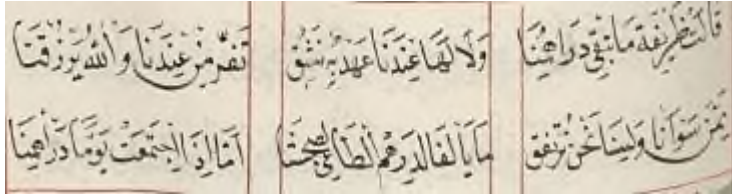 قالت ظريفة ما تبقى دراهمنا ولا لها عندنا عهد به نثق تفرّ من عندنا والله يرزقنا
بمن سوانا ولسنا نحن نرتفق ما يالف الدرهم الطائي صحبتنا امّا اذا اجتمعت يوما دراهمنا